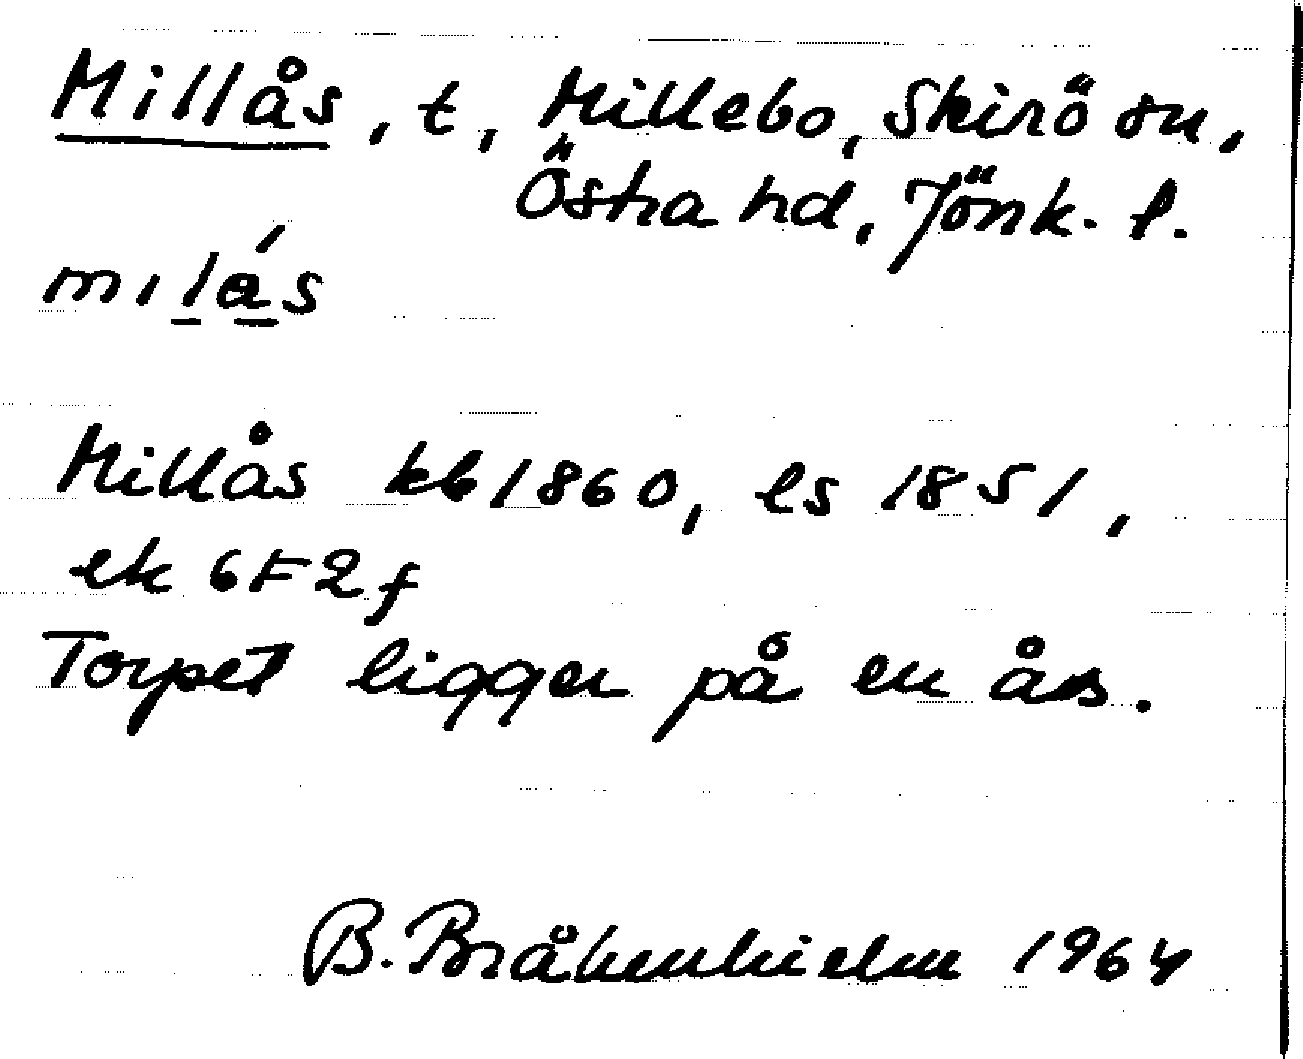 Millås, t, Millebo, Skirö sn,
Östra hd, Jönk. l.
mılás
Millås kb 1860, ls 1851,
ek 6F2f
Torpet ligger på en ås.
B. Bråkenhielm 1964